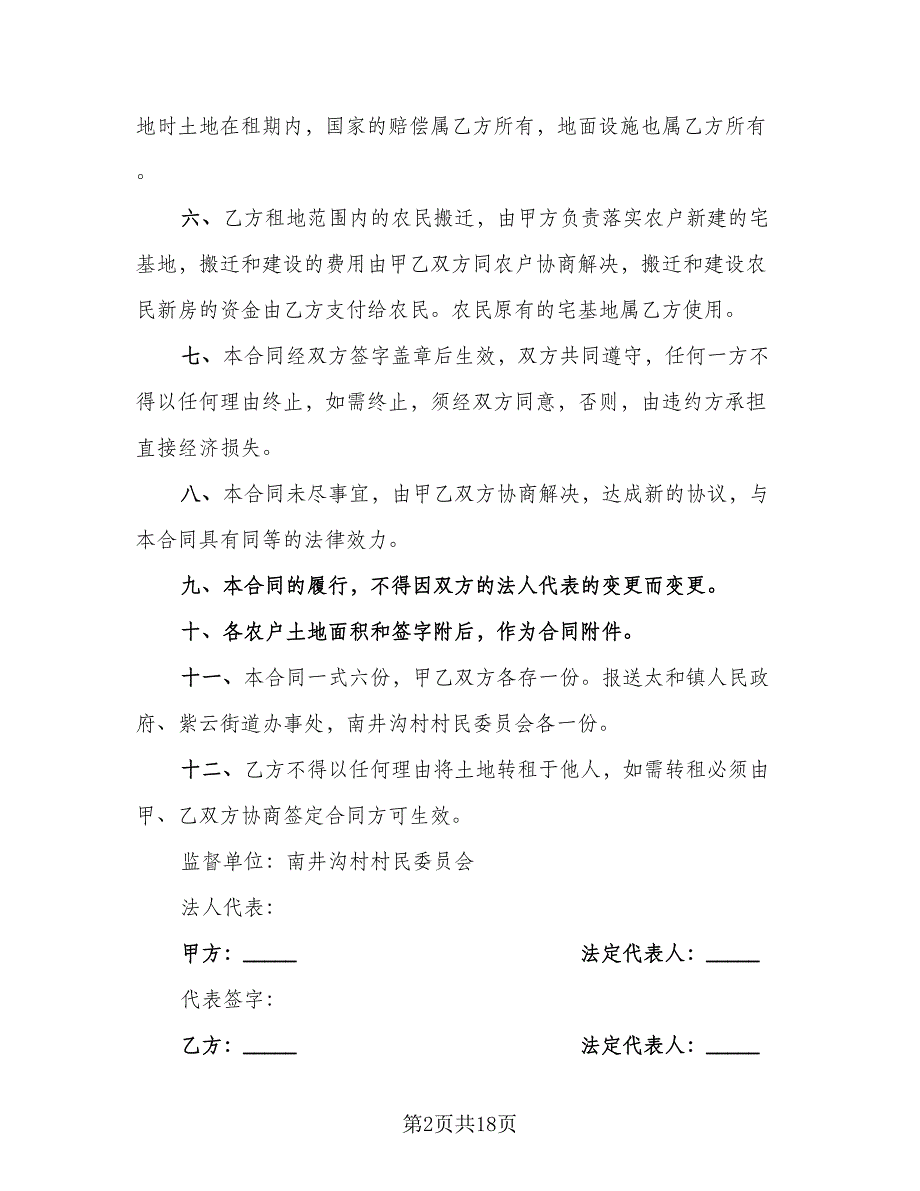 地时土地在租期内，国家的赔偿属乙方所有，地面设施也属乙方所有
。
六、乙方租地范围内的农民搬迁，由甲方负责落实农户新建的宅
基地，搬迁和建设的费用由甲乙双方同农户协商解决，搬迁和建设农
民新房的资金由乙方支付给农民。农民原有的宅基地属乙方使用。
七、本合同经双方签字盖章后生效，双方共同遵守，任何一方不
得以任何理由终止，如需终止，须经双方同意，否则，由违约方承担
直接经济损失。
八、本合同未尽事宜，由甲乙双方协商解决，达成新的协议，与
本合同具有同等的法律效力。
九、本合同的履行，不得因双方的法人代表的变更而变更。
十、各农户土地面积和签字附后，作为合同附件。
十一、本合同一式六份，甲乙双方各存一份。报送太和镇人民政
府、紫云街道办事处，南井沟村村民委员会各一份。
十二、乙方不得以任何理由将土地转租于他人，如需转租必须由
甲、乙双方协商签定合同方可生效。
监督单位：南井沟村村民委员会
法人代表：
甲方：_____ 法定代表人：_____
代表签字：
乙方：_____ 法定代表人：_____
第2页共18页